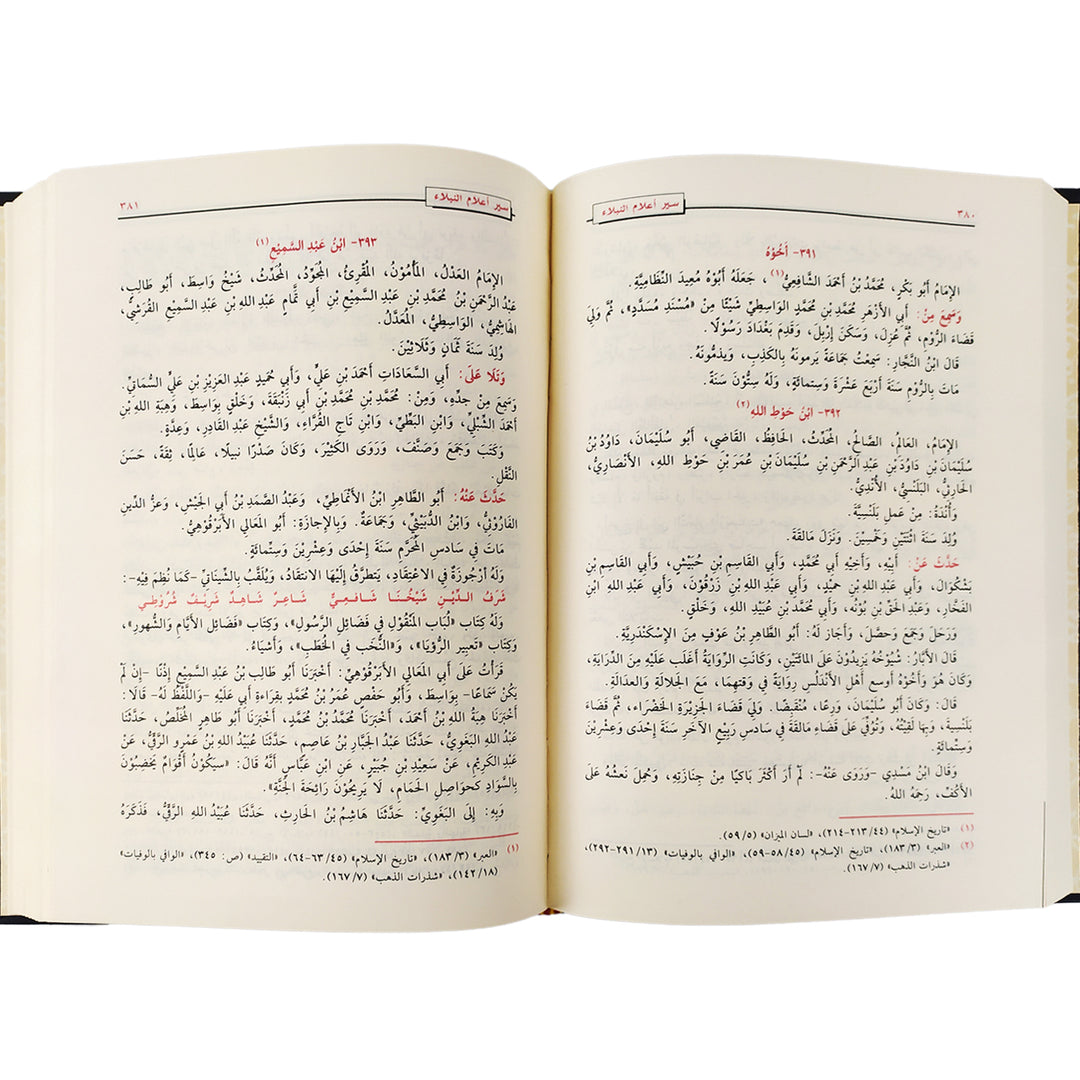 ٣٨٠
سير أعلام النبلاء
٣٩١- أَخُوْهُ
الإِمَامُ أَبُو بَكْرٍ، مُحَمَّدُ بْنُ أَحْمَدَ الشَّافِعِيُّ(١)، جَعَلَهُ أَبُوْهُ مُعِيدَ النِّظَامِيَّةِ.
وَسَمِعَ مِنْ: أَبِي الأَزْهَرِ مُحَمَّدِ بْنِ مُحَمَّدٍ الوَاسِطِيِّ شَيْئًا مِنْ «مُسْنَدِ مُسَدَّدٍ»، ثُمَّ وَلِيَ
قَضَاءَ الرُّوْمِ، ثُمَّ عُزِلَ، وَسَكَنَ إِرْبِلَ، وَقَدِمَ بَغْدَادَ رَسُوْلًا.
قَالَ ابْنُ النَّجَّارِ: سَمِعْتُ جَمَاعَةً يَرمونَهُ بِالكَذِبِ، وَيذمُّونَهُ.
مَاتَ بِالرُّوْمِ سَنَةَ أَرْبَعَ عَشْرَةَ وَسِتمائَةٍ، وَلَهُ سِتُّوْنَ سَنَةً.
٣٩٢- ابْنُ حَوْطِ اللهِ(٢)
الإِمَامُ، العَالِمُ، الصَّالِحُ، المُحَدِّثُ، الحَافِظُ، القَاضِي، أَبُو سُلَيْمَانَ، دَاوُدُ بْنُ
سُلَيْمَانَ بْنِ دَاوُدَ بْنِ عَبْدِ الرَّحْمَنِ بْنِ سُلَيْمَانَ بْنِ عُمَرَ بْنِ حَوْطِ اللهِ، الأَنْصَارِيُّ،
الحَارِثِيُّ، البَلَنْسِيُّ، الأُنْدِيُّ.
وَأُنْدَةُ: مِنْ عَملِ بَلَنْسِيَّةَ.
وُلِدَ سَنَةَ اثْنَتَيْنِ وَخَمْسِيْنَ. وَنَزَلَ مَالقَةَ.
حَدَّثَ عَنْ: أَبِيْهِ، وَأَخِيْهِ أَبِي مُحَمَّدٍ، وَأَبِي القَاسِمِ بْنِ حُبَيْشٍ، وَأَبِي القَاسِمِ بْنِ
بَشْكُوَالَ، وَأَبِي عَبْدِ اللهِ بْنِ حميدٍ، وَأَبِي عَبْدِ اللهِ بْنِ زَرْقُوْنَ، وَأَبِي عَبْدِ اللهِ ابْنِ
الفَخَّارِ، وَعَبْدِ الحَقِّ بْنِ بُوْنُه، وَأَبِي مُحَمَّدٍ بْنِ عُبَيْدِ اللهِ، وَخَلْقٍ.
وَرَحَلَ وَجَمَعَ وَحصَّلَ، وَأَجَازَ لَهُ: أَبُو الطَّاهِرِ بْنُ عَوْفٍ مِنَ الإِسْكَنْدَرِيَّةِ.
قَالَ الأَبَّارُ: شُيُوْخُهُ يَزِيدُوْنَ عَلَى المائَتَيْنِ، وَكَانَتِ الرِّوَايَةُ أَغلَبَ عَلَيْهِ مِنَ الدِّرَايَةِ،
وَكَانَ هُوَ وَأَخُوْهُ أَوسعَ أَهْلِ الأَنْدَلُسِ رِوَايَةً فِي وَقتِهِمَا، مَعَ الجَلَالَةِ وَالعدَالَةِ.
قَالَ: وَكَانَ أَبُو سُلَيْمَانَ، وَرِعًا، مُنْقَبِضًا. وَلِيَ قَضَاءَ الجَزِيْرَةِ الخَضْرَاءِ، ثُمَّ قَضَاءَ
بَلَنْسِيةَ، وَبِهَا لَقِيْتُهُ، وَتُوُفِّيَ عَلَى قَضَاءِ مَالقَةَ فِي سَادسِ رَبِيْعٍ الآخَرِ سَنَةَ إِحْدَى وَعِشْرِيْنَ
وَسِتّمائَةٍ.
وَقَالَ ابْنُ مَسْدِي -وَرَوَى عَنْهُ-: لَمْ أَرَ أَكْثَرَ بَاكيًا مِنْ جِنَازتِهِ، وَحُمِلَ نَعشُهُ عَلَى
الأَكُفِّ، رَحِمَهُ اللهُ.
(١) «تاريخ الإسلام» (٤٤/ ٢١٣-٢١٤)، «لسان الميزان» (٥/ ٥٩).
(٢) «العبر» (٣/ ١٨٣)، «تاريخ الإسلام» (٤٥/ ٥٨-٥٩)، «الوافي بالوفيات» (١٣/ ٢٩١-٢٩٢)،
«شذرات الذهب» (٧/ ١٦٧).
سير أعلام النبلاء
٣٨١
٣٩٣- ابْنُ عَبْدِ السَّمِيْعِ(١)
الإِمَامُ العَدْلُ، المَأْمُوْنُ، المُقْرِئُ، المُجَوِّدُ، المُحَدِّثُ، شَيْخُ وَاسِطَ، أَبُو طَالِبٍ،
عَبْدُ الرَّحْمَنِ بْنُ مُحَمَّدِ بْنِ عَبْدِ السَّمِيْعِ بْنِ أَبِي تَمَّامٍ عَبْدِ اللهِ بْنِ عَبْدِ السَّمِيْعِ القُرَشِيُّ،
الهَاشِمِيُّ، الوَاسِطِيُّ، المُعَدَّلُ.
وُلِدَ سَنَةَ ثَمَانٍ وَثَلَاثِيْنَ.
وَتَلَا عَلَى: أَبِي السَّعَادَاتِ أَحْمَدَ بْنِ عَلِيٍّ، وَأَبِي حُمَيدٍ عَبْدِ العَزِيْزِ بْنِ عَلِيٍّ السُّمَاتِيِّ.
وَسَمِعَ مِنْ جدِّهِ، وَمِنْ: مُحَمَّدِ بْنِ مُحَمَّدِ بْنِ أَبِي زَنْبَقَةَ، وَخَلْقٍ بِوَاسِطَ، وَهِبَةِ اللهِ بْنِ
أَحْمَدَ الشِّبْلِيِّ، وَابْنِ البَطِّيِّ، وَابْنِ تَاجِ القُرَّاءِ، وَالشَّيْخِ عَبْدِ القَادِرِ، وَعِدَّةٍ.
وَكَتَبَ وَجَمَعَ وَصَنَّفَ، وَرَوَى الكَثِيْرَ، وَكَانَ صَدْرًا نَبِيلًا، عَالِمًا، ثِقَةً، حَسَنَ
النَّقْلِ.
حَدَّثَ عَنْهُ: أَبُو الطَّاهِرِ ابْنُ الأَنْمَاطِيِّ، وَعَبْدُ الصَّمَدِ بْنُ أَبِي الجَيْشِ، وَعزُّ الدِّينِ
الفَارُوْثِيُّ، وَابْنُ الدُّبَيْثِيِّ، وَجَمَاعَةٌ. وَبِالإِجَازَةِ: أَبُو المَعَالِي الأَبَرْقُوْهِيُّ.
مَاتَ فِي سَادسِ المُحَرَّمِ سَنَةَ إِحْدَى وَعِشْرِيْنَ وَسِتِّمائَةٍ.
وَلَهُ أُرْجُوزَةٌ فِي الاعْتِقَادِ، يَتطرَّقُ إِلَيْهَا الانتقَادُ، وَيُلقَّبُ بِالشيناتِيِّ -كَمَا نُظِمَ فِيْهِ-:
شَرَفُ الدِّيْنِ شَيْخُنَا شَافِعِيٌّ شَاعِرٌ شَاهِدٌ شَرِيْفٌ شُرُوْطِي
وَلَهُ كِتَابُ «لُبَابِ المَنْقُوْلِ فِي فَضَائِلِ الرَّسُوْلِ»، وَكِتَابُ «فَضَائِلِ الأَيَّامِ وَالشُّهورِ»،
وَكِتَابُ «تَعبيرِ الرُّؤيَا»، وَ«النُّخَبِ فِي الخُطَبِ»، وَأَشيَاءُ.
قَرَأْتُ عَلَى أَبِي المَعَالِي الأَبَرْقُوْهِيِّ: أَخْبَرَنَا أَبُو طَالِبٍ بْنُ عَبْدِ السَّمِيْعِ إِذْنًا -إِنْ لَمْ
يَكُنْ سَمَاعًا- بِوَاسِطَ، وَأَبُو حَفْصٍ عُمَرُ بْنُ مُحَمَّدٍ بِقِرَاءةِ أَبِي عَلَيْهِ -وَاللَّفْظُ لَهُ- قَالَا:
أَخْبَرَنَا هِبَةُ اللهِ بْنُ أَحْمَدَ، أَخْبَرَنَا مُحَمَّدُ بْنُ مُحَمَّدٍ، أَخْبَرَنَا أَبُو طَاهِرٍ المُخَلِّصُ، حَدَّثَنَا
عَبْدُ اللهِ البَغَوِيُّ، حَدَّثَنَا عَبْدُ الجَبَّارِ بْنُ عَاصِمٍ، حَدَّثَنَا عُبَيْدُ اللهِ بْنُ عَمْرٍو الرَّقِّيُّ، عَنْ
عَبْدِ الكَرِيْمِ، عَنْ سَعِيْدِ بْنِ جُبَيْرٍ، عَنِ ابْنِ عَبَّاسٍ أَنَّهُ قَالَ: «سَيَكُوْنُ أَقْوَامٌ يَخضِبُوْنَ
بِالسَّوَادِ كحواصِلِ الحَمَامِ، لَا يَرِيحُوْنَ رَائِحَةَ الجَنَّةِ».
وَبِهِ: إِلَى البَغَوِيِّ: حَدَّثَنَا هَاشِمُ بْنُ الحَارِثِ، حَدَّثَنَا عُبَيْدُ اللهِ الرَّقِّيُّ، فَذَكَرَهُ
(١) «العبر» (٣/ ١٨٣)، «تاريخ الإسلام» (٤٥/ ٦٣-٦٤)، «التقييد» (ص: ٣٤٥)، «الوافي بالوفيات»
(١٨/ ١٤٢)، «شذرات الذهب» (٧/ ١٦٧).